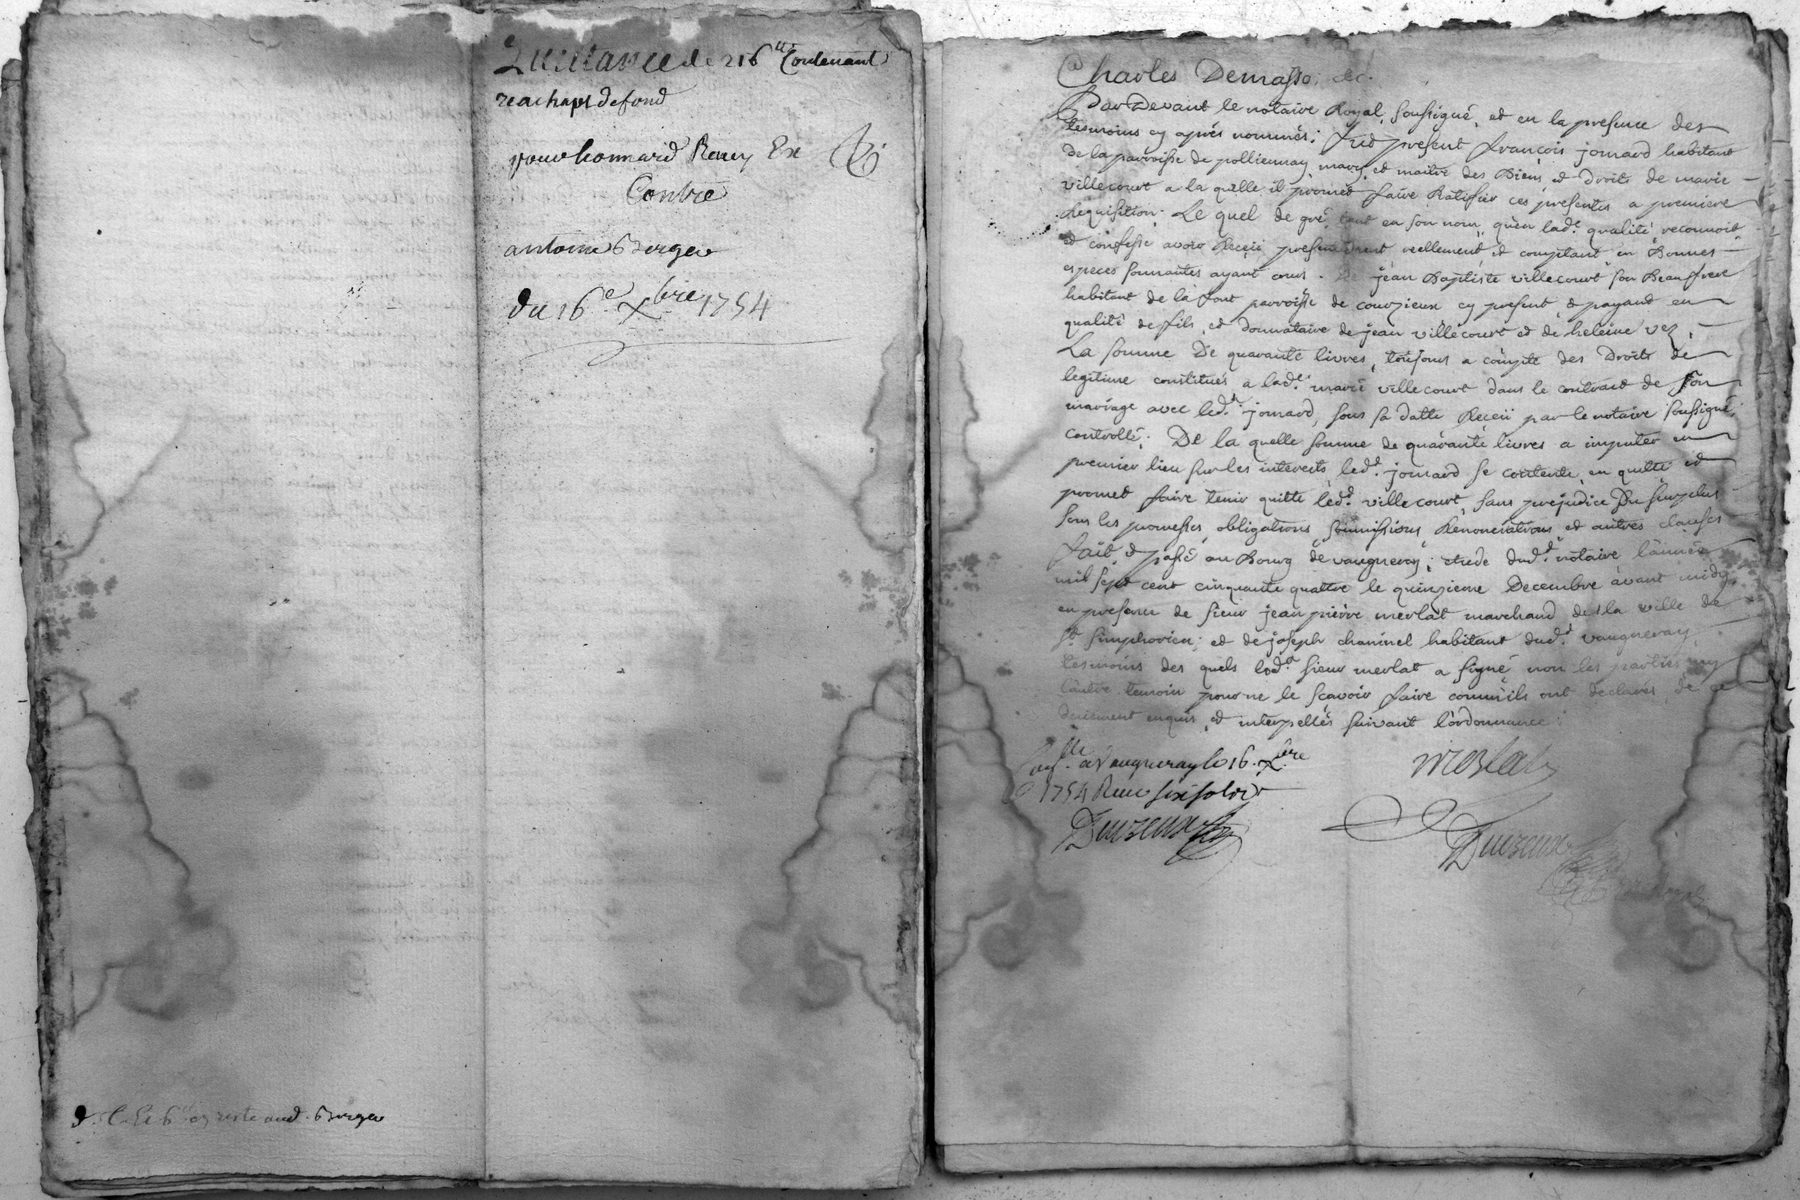 Quittance de 216ᵗᵗ Contenant
reachapt de fond
pour
Contre
antoine Berger
du 16ᵉ Xbre 1754
Berger
Charles Demasso &c.
Par Devant le notaire Royal soussigné, et en la presence des
tesmoins cy aprés nommés: fut present françois jomard habitant
de la parroisse de polliennay, mary et maitre des Biens et Droits de marie
villecourt a la quelle il promet faire Ratifier ces presentes a premiere
Requisition. Le quel de gré tant en son nom, qu'en lad.e qualité, reconnoit
et confesse avoir Receü presentement reellement et comptant en Bonnes
especes sonnantes ayant cours. De jean Baptiste villecourt son Beaufrere
habitant de la font parroisse de courzieux cy present, & payant en
qualité de fils et Donnataire de jean villecourt et de heleine vez,
La somme De quarante livres, toujours a compte des Droits de
legitime constitués a lad.e marie villecourt dans le contract de son
mariage avec led.t jomard, sous sa datte Receü par le notaire soussigné,
controllé; De la quelle somme de quarante livres a imputer en
premier lieu sur les interests led.t jomard se contente, en quitte et
promet faire tenir quitte led.t villecourt, sans prejudice Du surplus
sous les promesses, obligations, soumissions, Renonciations et autres clauses
fait & passé au Bourg de vaugneray, etude dud.t notaire l'année
mil sept cent cinquante quattre le quinzieme Decembre avant midy,
en presence de sieur jean pierre merlat marchand de la ville de
S.t simphorien; et de joseph chaninel habitant dud.t vaugneray
tesmoins des quels led.t sieur merlat a signé non les parties ny
l'autre temoin pour ne le scavoir faire comm'ils ont declarés de ce
Deüement enquis, et interpellés suivant l'ordonnance;
merlat
Con.lle a Vaugneray le 16. Xbre
1754 Reçu six sols